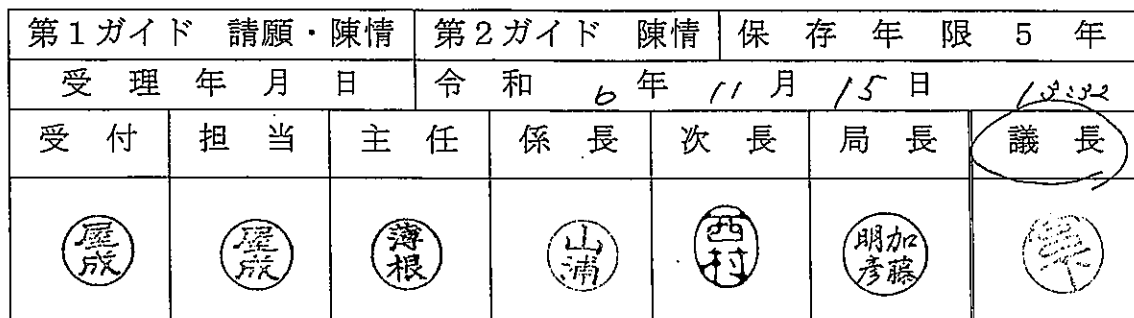 第1ガイド 請願・陳情 第2ガイド 陳情 保存年限5年
受理年月日 令和6年11月15日 13:32
受付 担当 主任 係長 次長 局長 議長
屋成 屋成 薄根 山浦 西村 加藤明彦